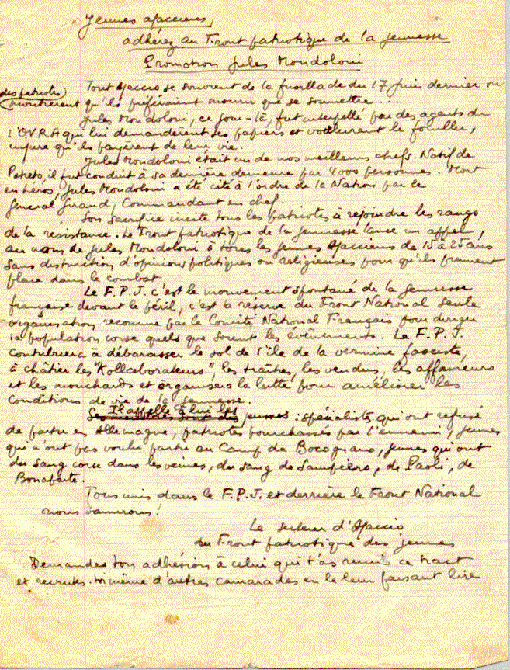 Jeunes ajacciens,
adhérez au Front patriotique de la jeunesse
Promotion Jules Mondoloni
Tout Ajaccio se souvient de la fusillade du 17 Juin dernier où
des patriotes montrèrent qu'ils préféraient mourir que se soumettre...
Jules Mondoloni, ce jour-là, fut interpellé par des agents de
l'OVRA qui lui demandèrent ses papiers et voulurent le fouiller,
injure qu'ils payèrent de leur vie.
Jules Mondoloni était un de nos meilleurs chefs. Natif de
Petreto, il fut conduit à sa dernière demeure par 4000 personnes. Mort
en héros, Jules Mondoloni a été cité à l'ordre de la Nation par le
général Giraud, Commandant en chef.
Son sacrifice incite tous les patriotes à rejoindre les rangs
de la résistance. Le Front patriotique de la jeunesse lance un appel,
au nom de Jules Mondoloni à tous les jeunes Ajacciens de 15 à 25 ans
sans distinction d'opinions politiques ou religieuses pour qu'ils prennent
place dans le combat.
Le F.P.J. c'est le mouvement spontané de la jeunesse
française devant le péril, c'est la réserve du Front National seule
organisation reconnue par le Comité National Français pour diriger
la population corse quels que soient les événements. Le F.P.J.
contribuera à débarrasser le sol de l'île de la vermine fasciste,
à châtier les "Kollaborateurs", les traîtres, les vendus, les affameurs
et les mouchards et organisera la lutte pour améliorer les
conditions de vie de la jeunesse.
Il appelle à lui les jeunes : spécialistes qui ont refusé
de partir en Allemagne, patriotes pourchassés par l'ennemi, jeunes
qui n'ont pas voulu partir au camp de Bocognano, jeunes qui ont
du sang corse dans les veines, du sang de Sampiero, de Paoli, de
Bonaparte.
Tous unis dans le F.P.J. et derrière le Front National
nous vaincrons !
Le secteur d'Ajaccio
du Front patriotique des jeunes
Demandes ton adhésion à celui qui t'as remis ce tract
et recrutes toi-même d'autres camarades en le leur faisant lire